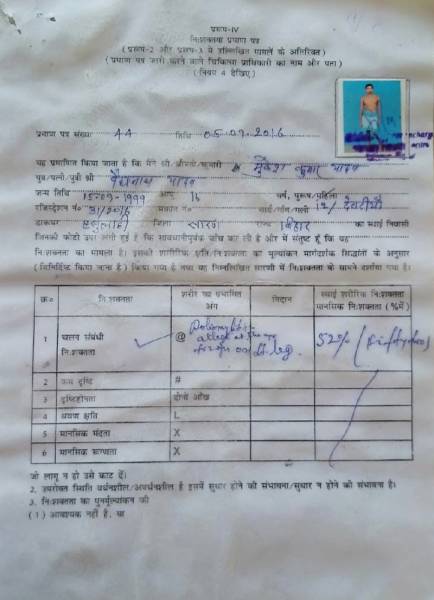 प्रारूप-IV
निःशक्तता प्रमाण पत्र
(प्रारूप-2 और प्रारूप-3 में उल्लिखित मामलों के अतिरिक्त)
(प्रमाण पत्र जारी करने वाले चिकित्सा प्राधिकारी का नाम और पता)
(नियम 4 देखिए)
प्रमाण पत्र संख्या 44 तिथि 05.09.2016
यह प्रमाणित किया जाता है कि मैंने श्री/श्रीमती/कुमारी मुकेश कुमार यादव
पुत्र/पत्नी/पुत्री श्री यादव
जन्म तिथि 15-09-1999 आयु 16 वर्ष, पुरूष/महिला
रजिस्ट्रेशन नं० 31/2016 मकान नं० वार्ड/गाँव/गली
डाकघर जिला सारण राज्य बिहार का स्थाई निवासी
जिनकी फोटो उपर लगी हुई है कि सावधानीपूर्वक जाँच कर ली है और मैं संतुष्ट हूँ कि यह
निःशक्तता का मामला है। इसकी शारीरिक क्षति/निःशक्तता का मूल्यांकन मार्गदर्शक सिद्धांतों के अनुसार
(विनिर्दिष्ट किया जाना है) किया गया है तथा यह निम्नलिखित सारणी में निःशक्तता के सामने दर्शाया गया है।
क्र० निःशक्तता शरीर का प्रभावित अंग निदान स्थाई शारीरिक निःशक्तता मानसिक निःशक्तता (%में)
1 चलन संबंधी निःशक्तता @ 52%
2 कम दृष्टि #
3 दृष्टिहीनता दोनों आँख
4 श्रवण क्षति L
5 मानसिक मंदता X
6 मानसिक रूग्णता X
जो लागू न हो उसे काट दें।
2. उपरोक्त स्थिति वर्धनशील/अवर्धनशील है इसमें सुधार होने की संभावना/सुधार न होने की संभावना है।
3. निःशक्तता का पुनर्मूल्यांकन की
(1) आवश्यक नहीं है, या